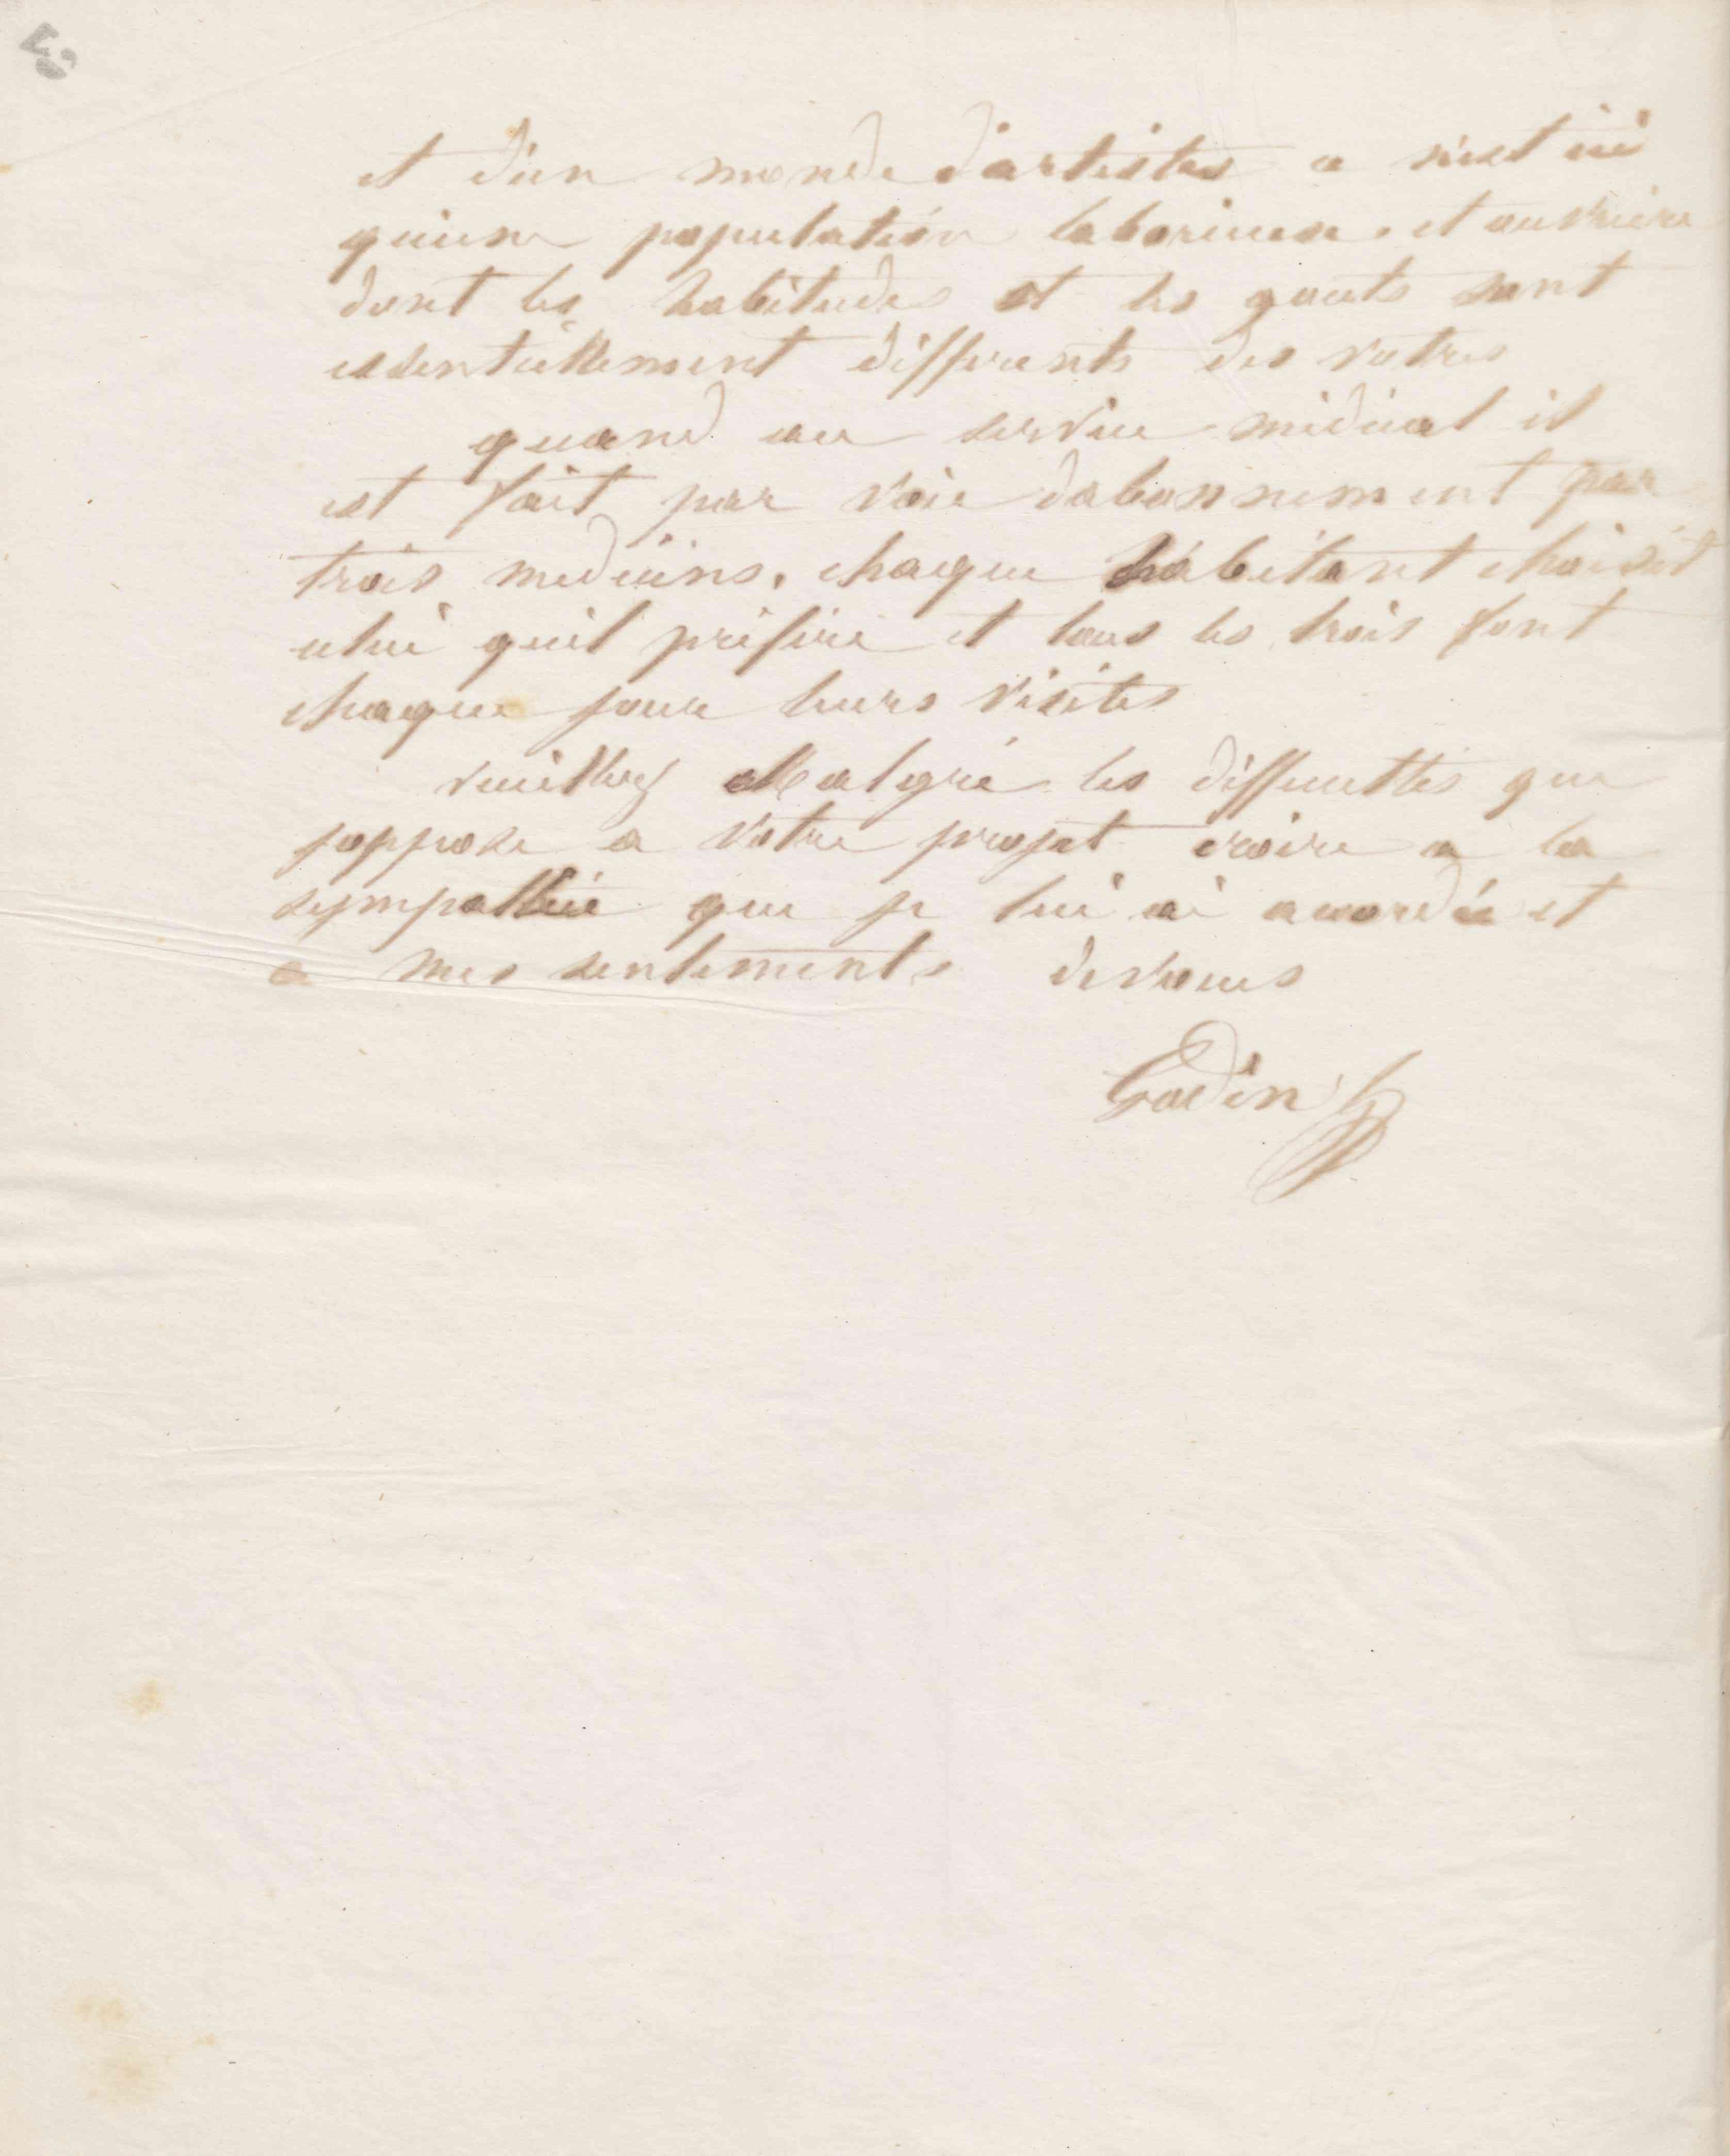 et d'un monde d'artistes ce n'est ici
qu'une population laborieuse et ouvrière
dont les habitudes et les gouts sont
essentiellement differents des votres
quand au service médical il
est fait par voie dabonnement par
trois medecins, chaque habitant choisit
celui quil préfère et tous les trois font
chaque jour leurs visites
veuillez Malgré les difficultés que
joppose a votre projet croire a la
sympathie que je lui ai accordée et
a mes sentiments devoues
Godin